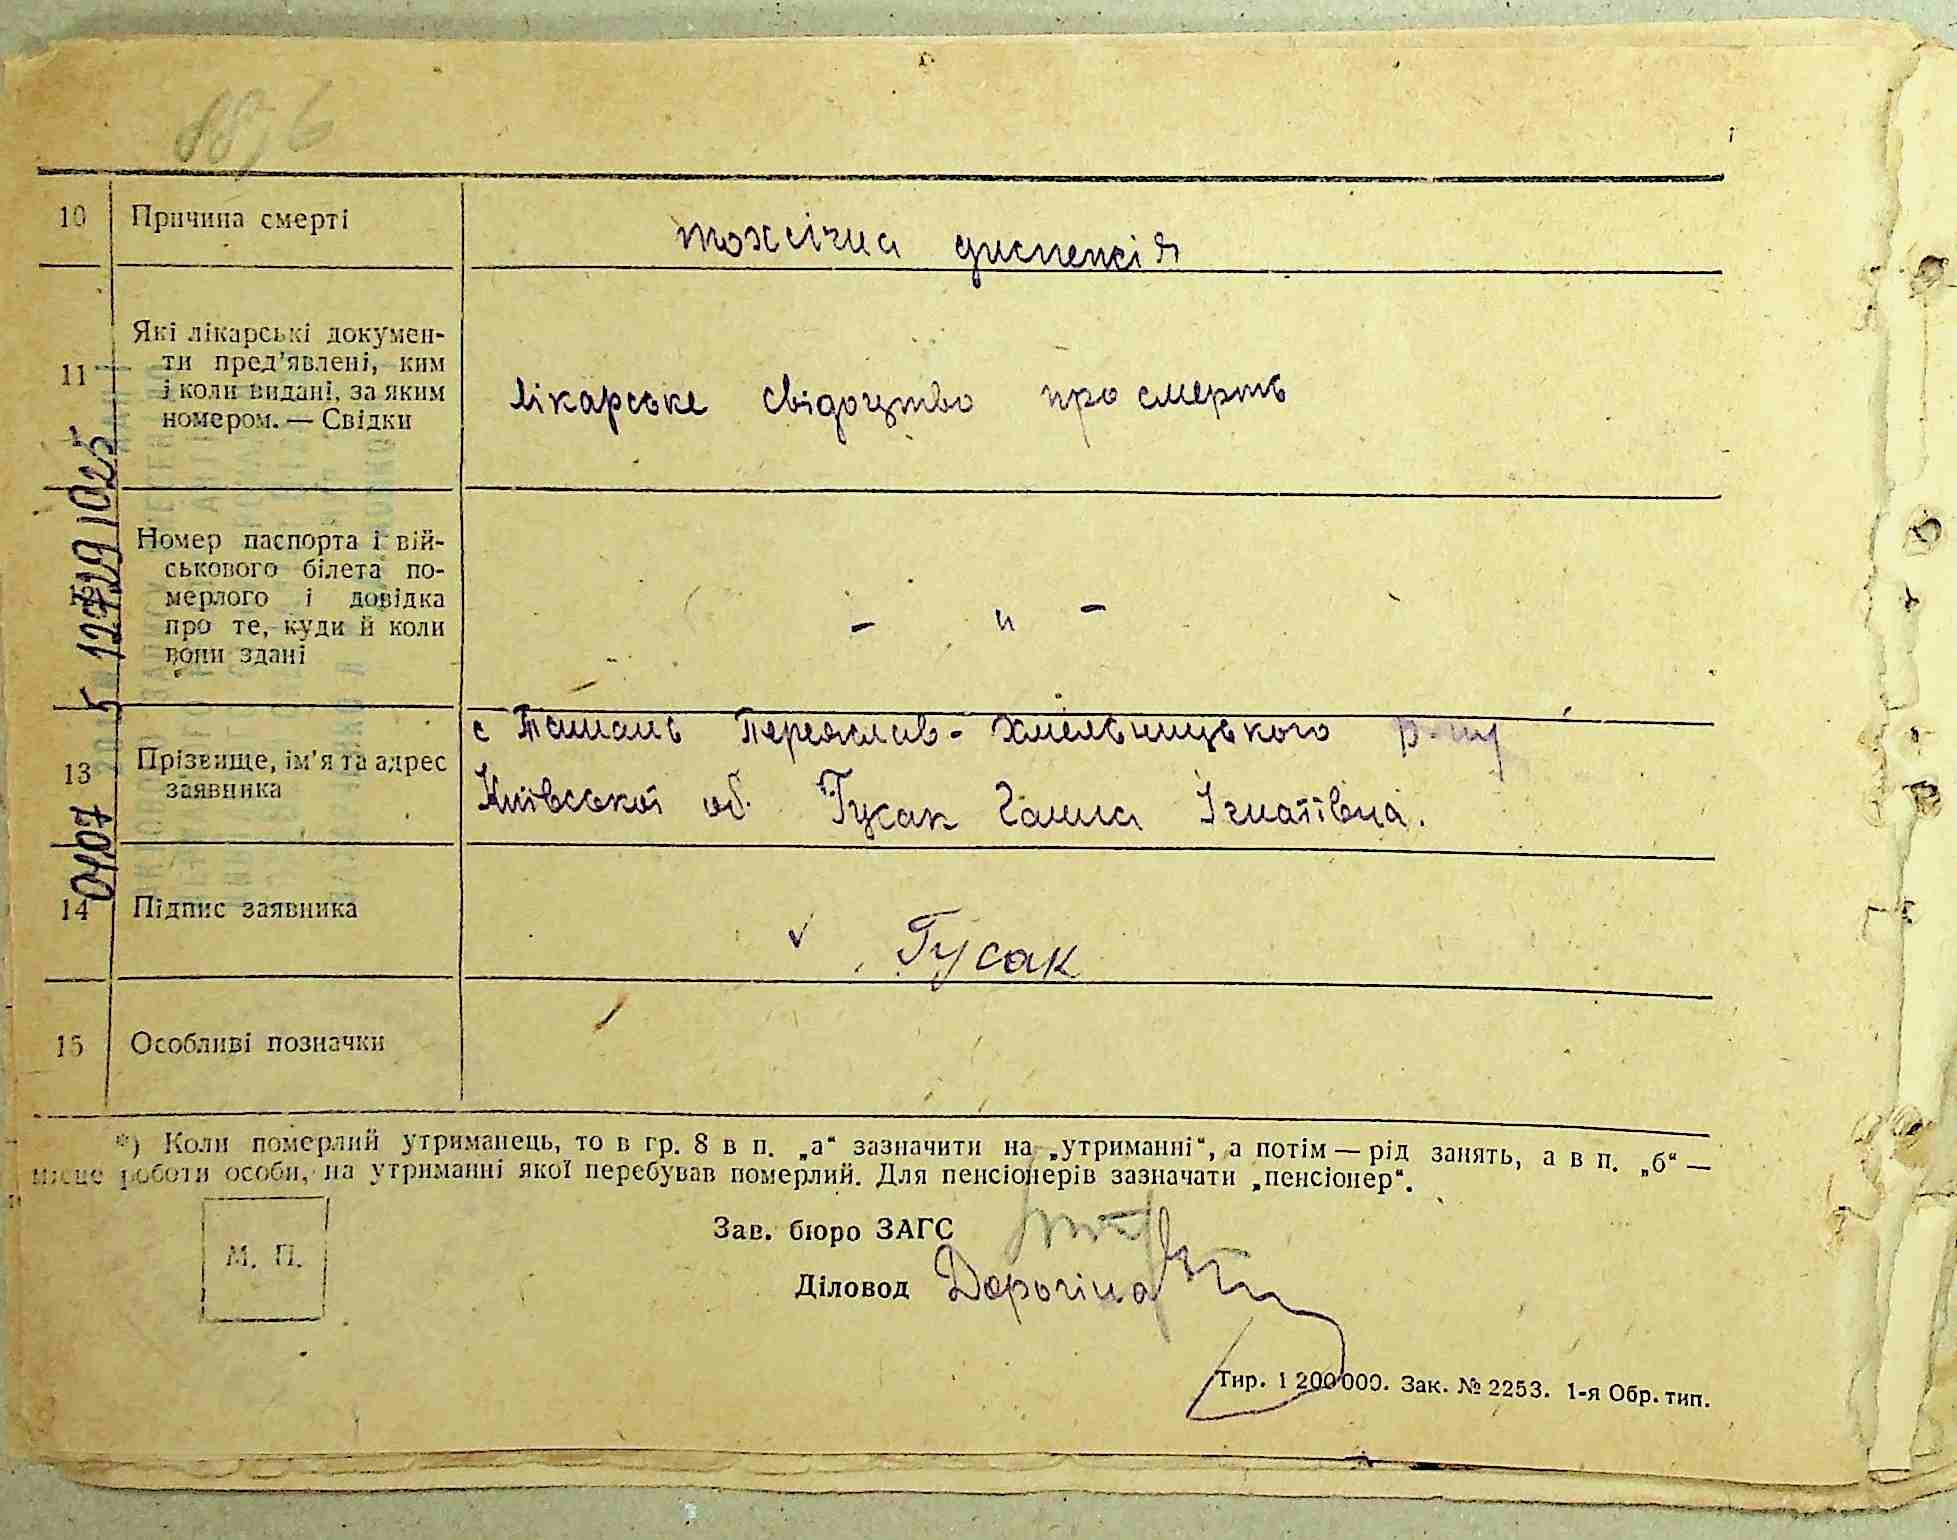 10 Причина смерті токсічна диспепсія
11 Які лікарські докумен-
ти пред'явлені, ким
і коли видані, за яким
номером. — Свідки
лікарське свідоцтво про смерть
12 Номер паспорта і вій-
ськового білета по-
мерлого і довідка
про те, куди й коли
вони здані
- " -
с Ташань Переяслав-Хмельницького р-ну
13 Прізвище, ім'я та адрес
заявника
Київської об. Гусак Ганна Ігнатівна.
14 Підпис заявника Гусак
15 Особливі позначки
*) Коли померлий утриманець, то в гр. 8 в п. „а“ зазначити на „утриманні“, а потім — рід занять, а в п. „б“ —
місце роботи особи, на утриманні якої перебував померлий. Для пенсіонерів зазначати „пенсіонер“.
Зав. бюро ЗАГС
М. П.
Діловод Дорогіна
Тир. 1 200 000. Зак. № 2253. 1-я Обр. тип.